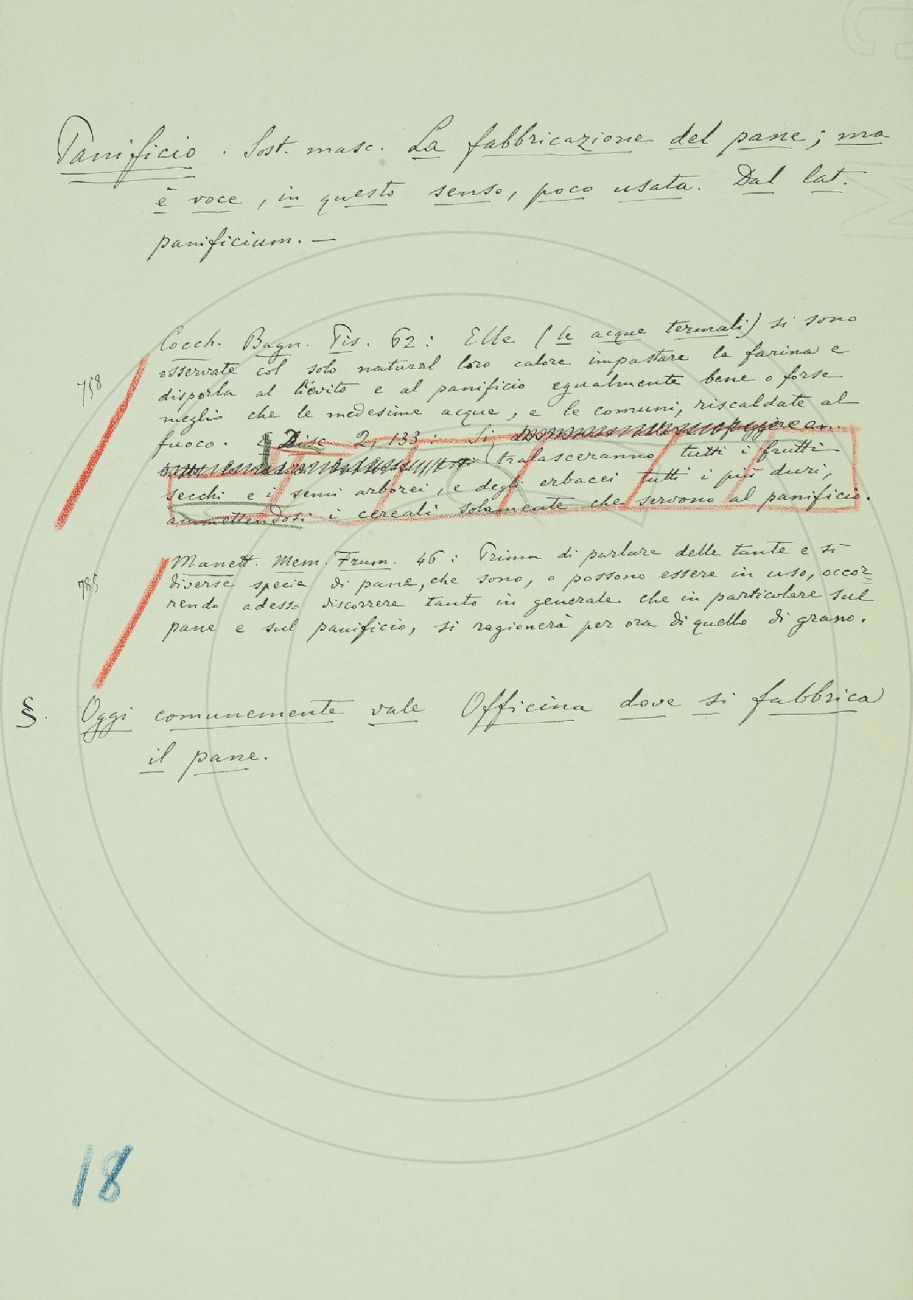 Panificio. Sost. masc. La fabbricazione del pane; ma
è voce, in questo senso, poco usata. Dal lat.
panificium. —
758
Cocch. Bagn. Pis. 62: Elle (le acque termali) si sono
osservate col solo natural loro calore impastare la farina e
disporla al lievito e al panificio egualmente bene o forse
meglio che le medesime acque, e le comuni, riscaldate al
fuoco. E Disc. 2, 133: Si
(tralasceranno tutti i frutti
secchi e i semi arborei, e degli erbacei tutti i più duri,
ammettendosi i cereali solamente che servono al panificio.
785
Manett. Mem. Frum. 46: Prima di parlare delle tante e sì
diverse specie di pane, che sono, o possono essere in uso, occor=
rendo adesso discorrere tanto in generale che in particolare sul
pane e sul panificio, si ragionerà per ora di quello di grano.
§. Oggi comunemente vale Officina dove si fabbrica
il pane.
18